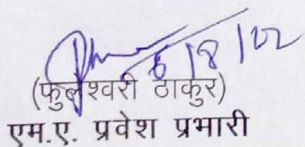 6/8/22
(फुलेश्वरी ठाकुर)
एम.ए. प्रवेश प्रभारी